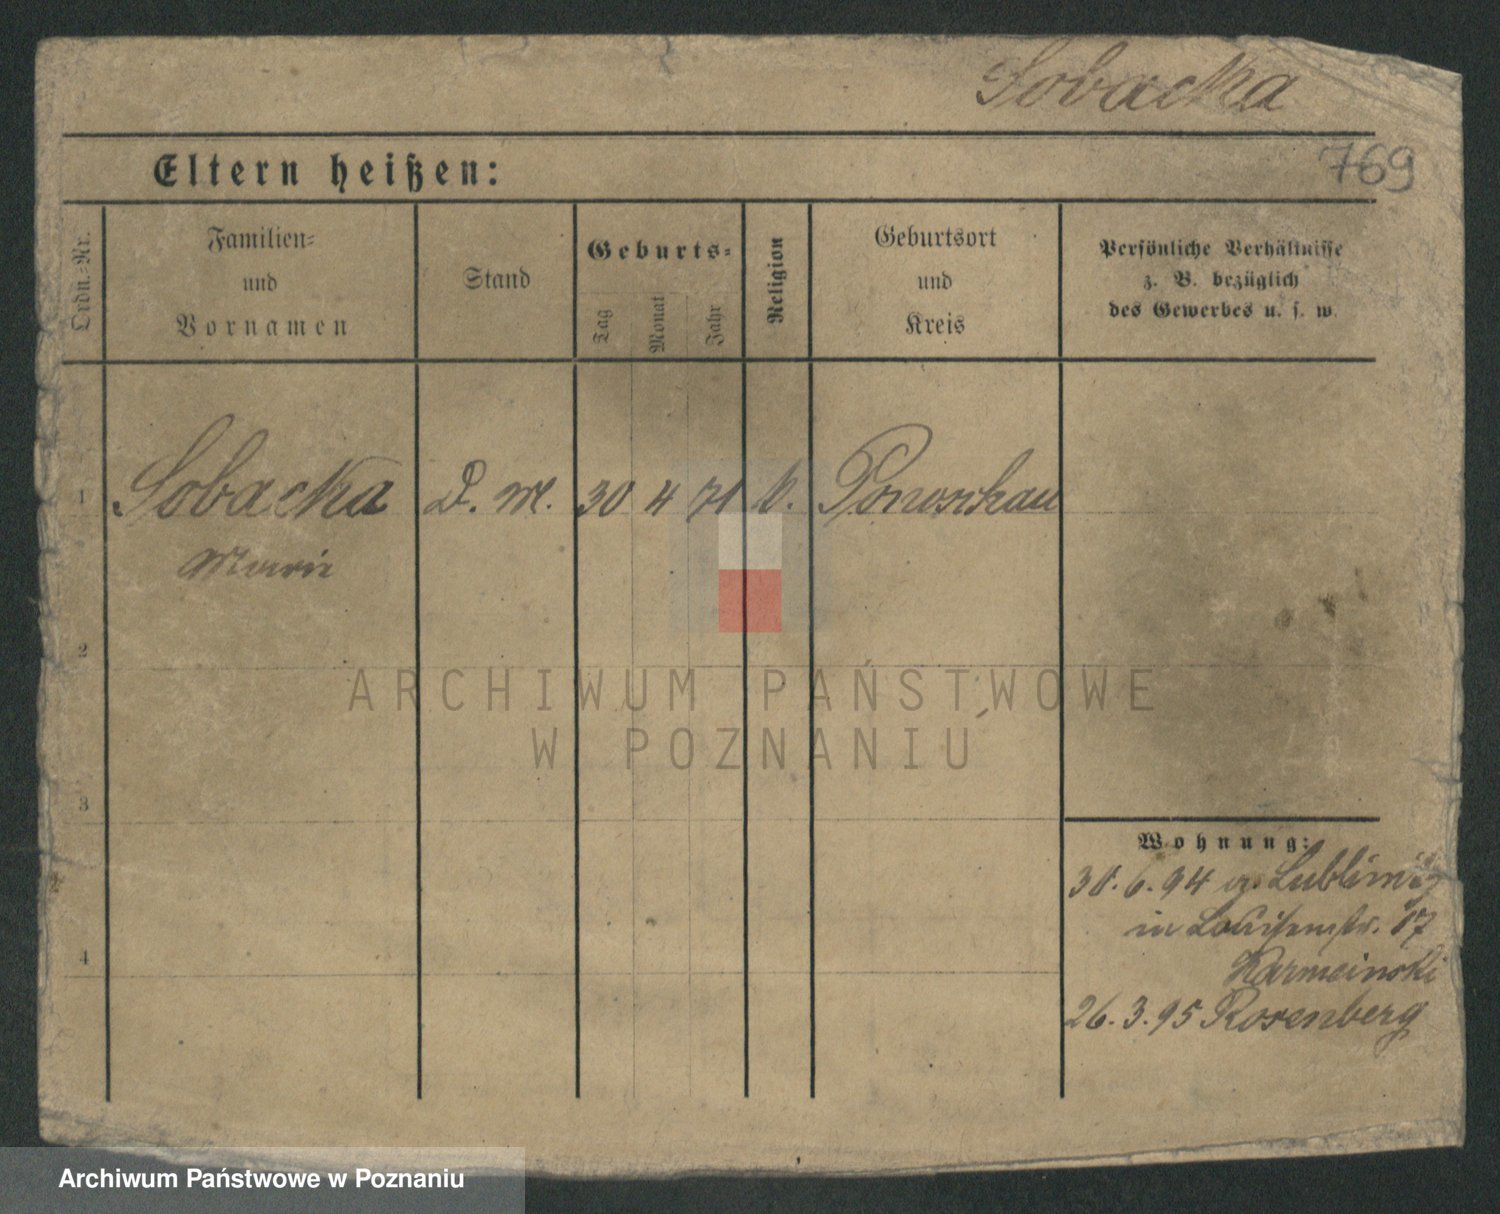 Sobacka
769
Eltern heißen:
Ordn.-Nr.
Familien-
und
Vornamen
Stand
Geburts-
Tag
Monat
Jahr
Religion
Geburtsort
und
Kreis
Persönliche Verhältnisse
z. B. bezüglich
des Gewerbes u. s. w.
1 Sobacka D. M. 30 4 71 k. Ponoschau
Marie
2
3
4
Wohnung:
30.6.94 a. Lublinitz
in Louisenstr. 17
26.3.95 Rosenberg
ARCHIWUM PAŃSTWOWE
W POZNANIU
Archiwum Państwowe w Poznaniu